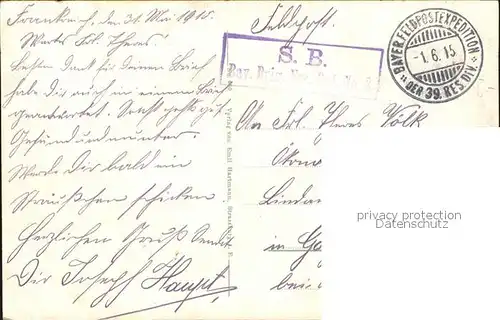 Frankreich, den 31. Mai 1915.
Wertes Frl. Theres.
Besten Dank für deinen Brief
habe dir auch in einem Brief
geantwortet. Sonst geht's gut
Gesund und munter.
Werde Dir bald ein
Sträußchen schicken.
Herzlichen Gruß Sendet
Dir Joseph Haupt
Feldpost.
S. B.
BAYER. FELDPOSTEXPEDITION
-1. 6. 15
DER 39. RES. DIV.
Verlag von Emil Hartmann, Strassburg
An Frl. Theres Völk
Ökono
Lindau
in
bei
privacy protection
Datenschutz